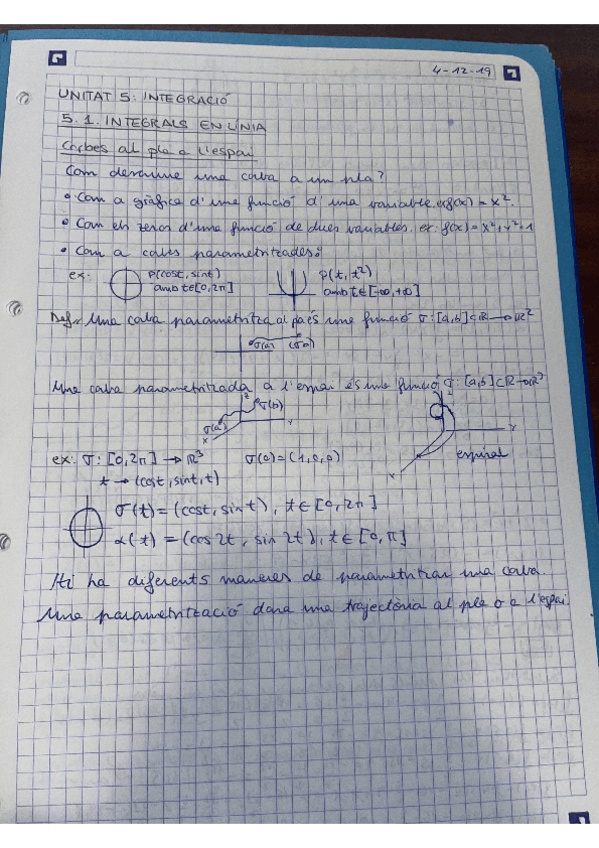 4-12-19
UNITAT 5: INTEGRACIÓ
5.1. INTEGRALS EN LÍNIA
Corbes al pla o l'espai
Com descriure una corba a un pla?
• Com a gràfica d'una funció d'una variable. ex: f(x) = x².
• Com els zeros d'una funció de dues variables. ex: f(x) = x²+y²-1
• Com a corbes parametritzades:
ex: P(cost, sint) P(t, t²)
amb t∈[0,2π] amb t∈[-∞,+∞]
Def: Una corba parametritza al pla és una funció σ: [a,b]⊂ℝ→ℝ²
σ(a) σ(b)
Una corba parametritzada a l'espai és una funció σ: [a,b]⊂ℝ→ℝ³
z
σ(b)
σ(a)
x y
ex: σ: [0,2π] → ℝ³ σ(0) = (1,0,0) espiral
x y
t → (cost, sint, t)
σ(t) = (cost, sint), t∈[0,2π]
α(t) = (cos 2t, sin 2t), t∈[0,π]
Hi ha diferents maneres de parametritzar una corba.
Una parametrització dona una trajectòria al pla o a l'espai.